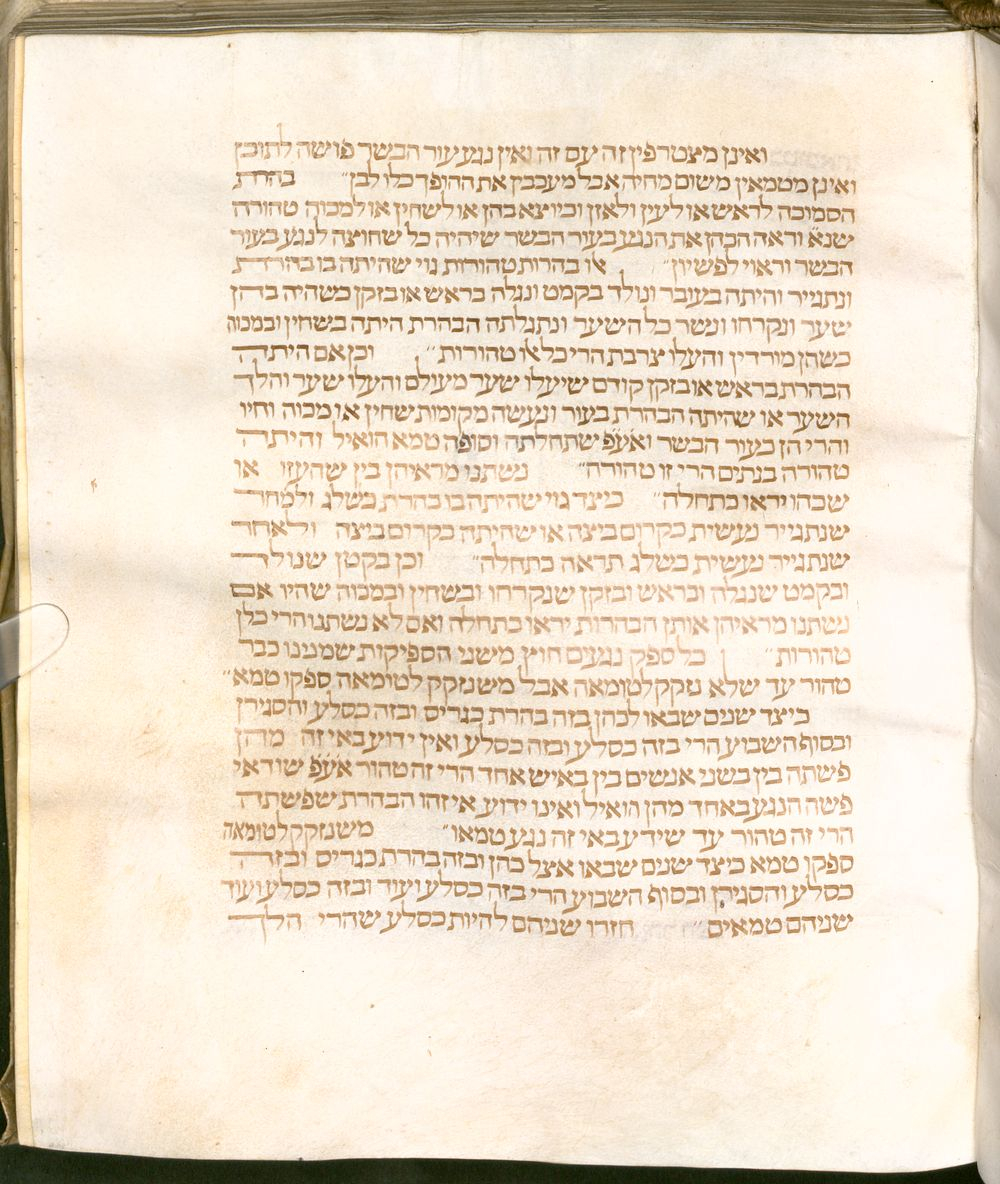 ואינן מצטרפין זה עם זה ואין נגע עור הבשר פושה לתוכן
ואינן מטמאין משום מחיה אבל מעכבין את ההופך כלו לבן״ בהרת
הסמוכה לראש או לעין ולאזן וכיוצא בהן או לשחין או למכוה טהורה
שנא׳ וראה הכהן את הנגע בעור הבשר שיהיה כל שחוצה לנגע בעור
הבשר וראוי לפשיון״ אלו בהרות טהורות גוי שהיתה בו בהרת
ונתגייר והיתה בעובר ונולד בקמט ונגלה בראש או בזקן כשהיה בהן
שער ונקרחו ונשר כל השער ונתגלתה הבהרת היתה בשחין ובמכוה
כשהן מורדין והעלו צרבת הרי כל אלו טהורות״ וכן אם היתה
הבהרת בראש או בזקן קודם שיעלו שער מעולם והעלו שער והלך
השער או שהיתה הבהרת בעור ונעשה מקומות שחין או מכוה וחיו
והרי הן כעור הבשר ואע״פ שתחלתה וסופה טמא הואיל והיתה
טהורה בנתים הרי זו טהורה״ נשתנו מראיהן בין שהעזו או
שכהו יראו כתחלה״ כיצד גוי שהיתה בו בהרת כשלג ולמחר
שנתגייר נעשית כקרום ביצה או שהיתה כקרום ביצה ולאחר
שנתגייר נעשית כשלג תראה כתחלה״ וכן בקטן שנולד
ובקמט שנגלה ובראש ובזקן שנקרחו ובשחין ובמכוה שהיו אם
נשתנו מראיהן אותן הבהרות יראו כתחלה ואם לא נשתנו הרי כלן
טהורות״ כל ספק נגעים חוץ משני הספיקות שמנינו כבר
טהור עד שלא נזקק לטומאה אבל משנזקק לטומאה ספקו טמא״
כיצד שנים שבאו לכהן בזה בהרת כגריס ובזה כסלע והסגירן
ובסוף השבוע הרי בזה כסלע ובזה כסלע ואין ידוע באי זה מהן
פשתה בין בשני אנשים בין באיש אחד הרי זה טהור אע״פ שודאי
פשה הנגע באחד מהן הואיל ואינו ידוע איזהו הבהרת שפשתה
הרי זה טהור עד שידע באי זה נגע טמאו״ משנזקק לטומאה
ספקן טמא כיצד שנים שבאו אצל כהן ובזה בהרת כגריס ובזה
כסלע והסגירן ובסוף השבוע הרי בזה כסלע ועוד ובזה כסלע ועוד
שניהם טמאים״ חזרו שניהם להיות כסלע שהרי הלך